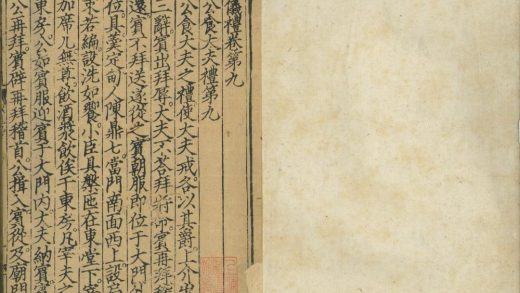 儀禮卷第九
公食大夫禮第九
公食大夫之禮使大夫戒各以其爵上介出
三辭賓出拜辱大夫不荅拜將命賓再拜稽
還賓不拜送遂從之賓朝服即位于大門
位具羹定甸人陳鼎七當門南面西上設扃
束若編設洗如饗小臣具槃匜在東堂下宰
加席几無尊飲酒漿飲俟于東房凡宰夫之
東房公如賓服迎賓于大門內大夫納賓賓
公再拜賓辟再拜稽首公揖入賓從及廟門